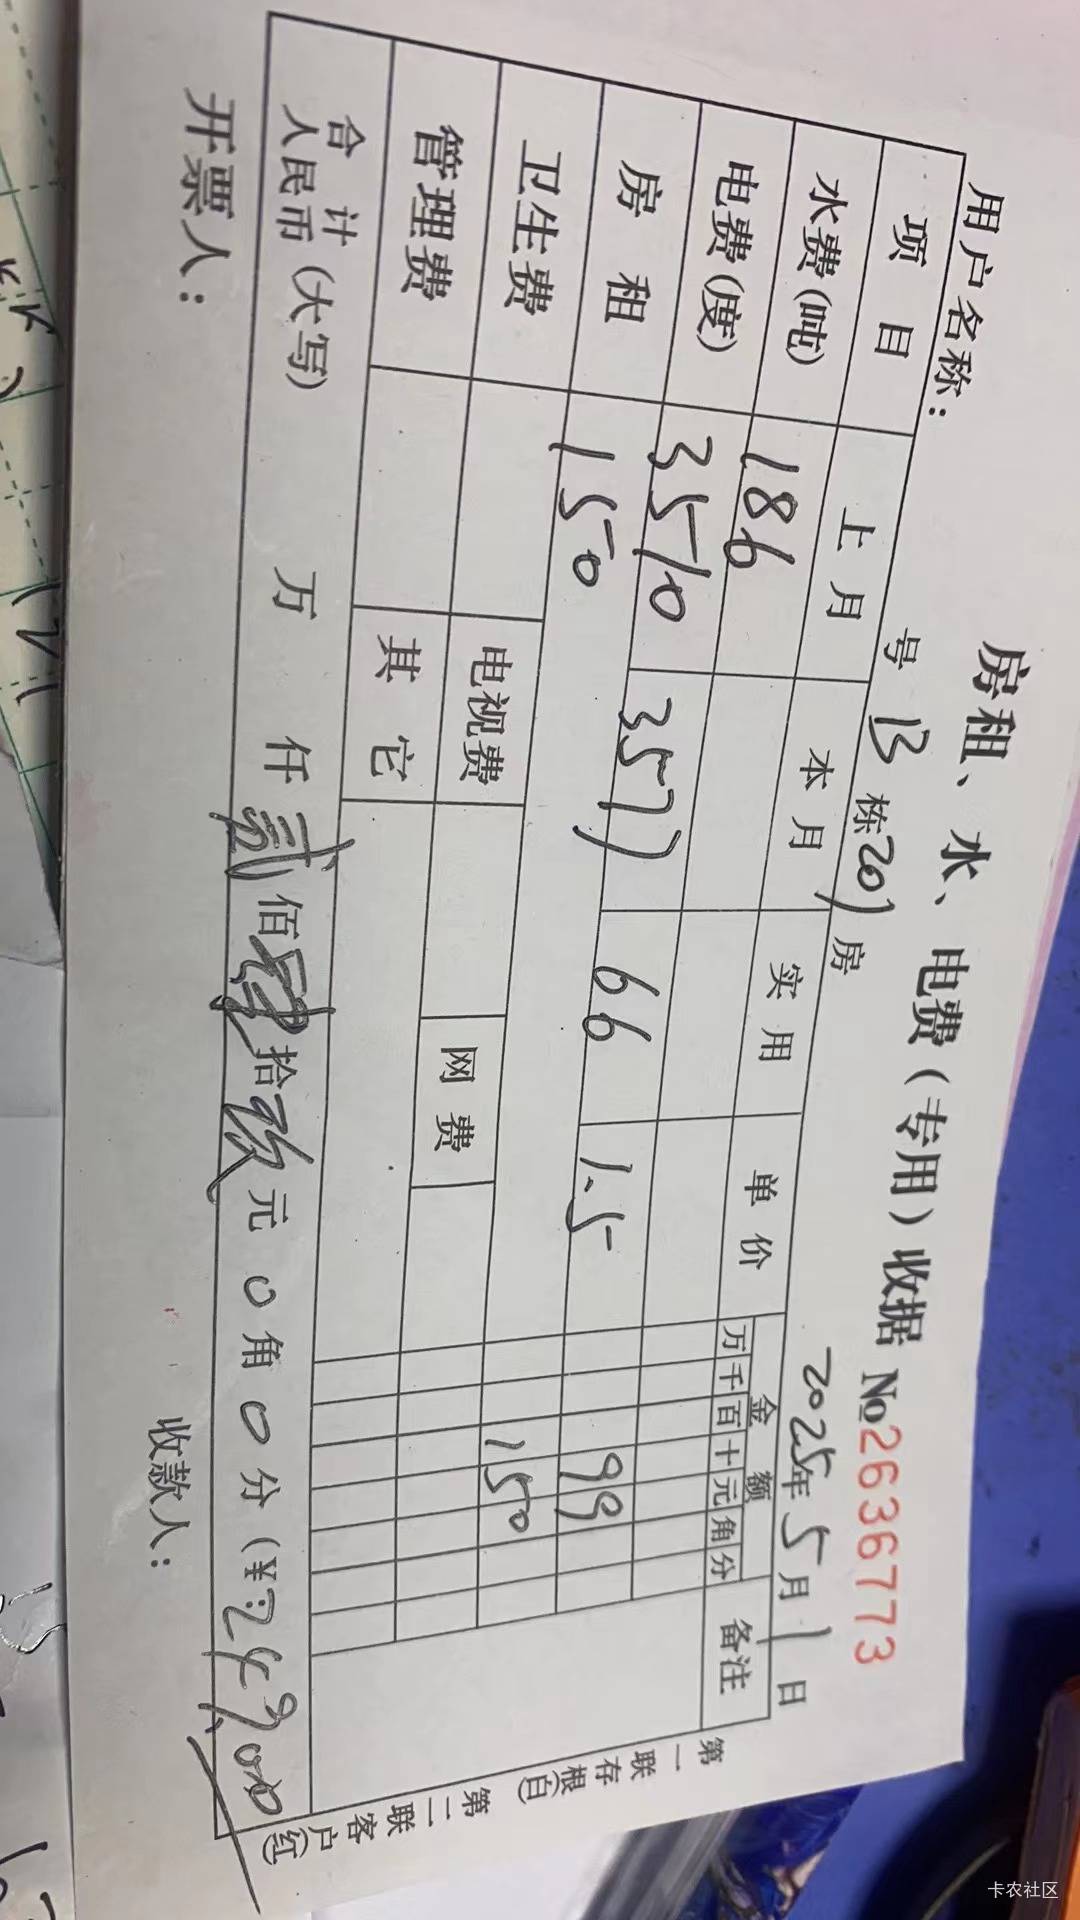 房租、水、电费（专用）收据 №2636773
用户名称： 号 13 栋 201 房 2025年 5月 1日
项目 上月 本月 实用 单价 金额 备注
万 千 百 十 元 角 分
水费(吨) 186
电费(度) 3510 3577 66 1.5 99
房租 150 150
卫生费 电视费 网费
管理费 其它
合计人民币(大写) 万 仟 贰 佰 肆 拾 玖 元 0 角 0 分(¥:249.00
开票人： 收款人：
第一联存根(白) 第二联客户(红)
卡农社区